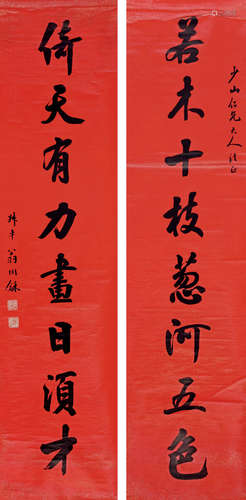 若木十枝葱河五色
少山仁兄大人法正
倚天有力畫日須才
翁同龢